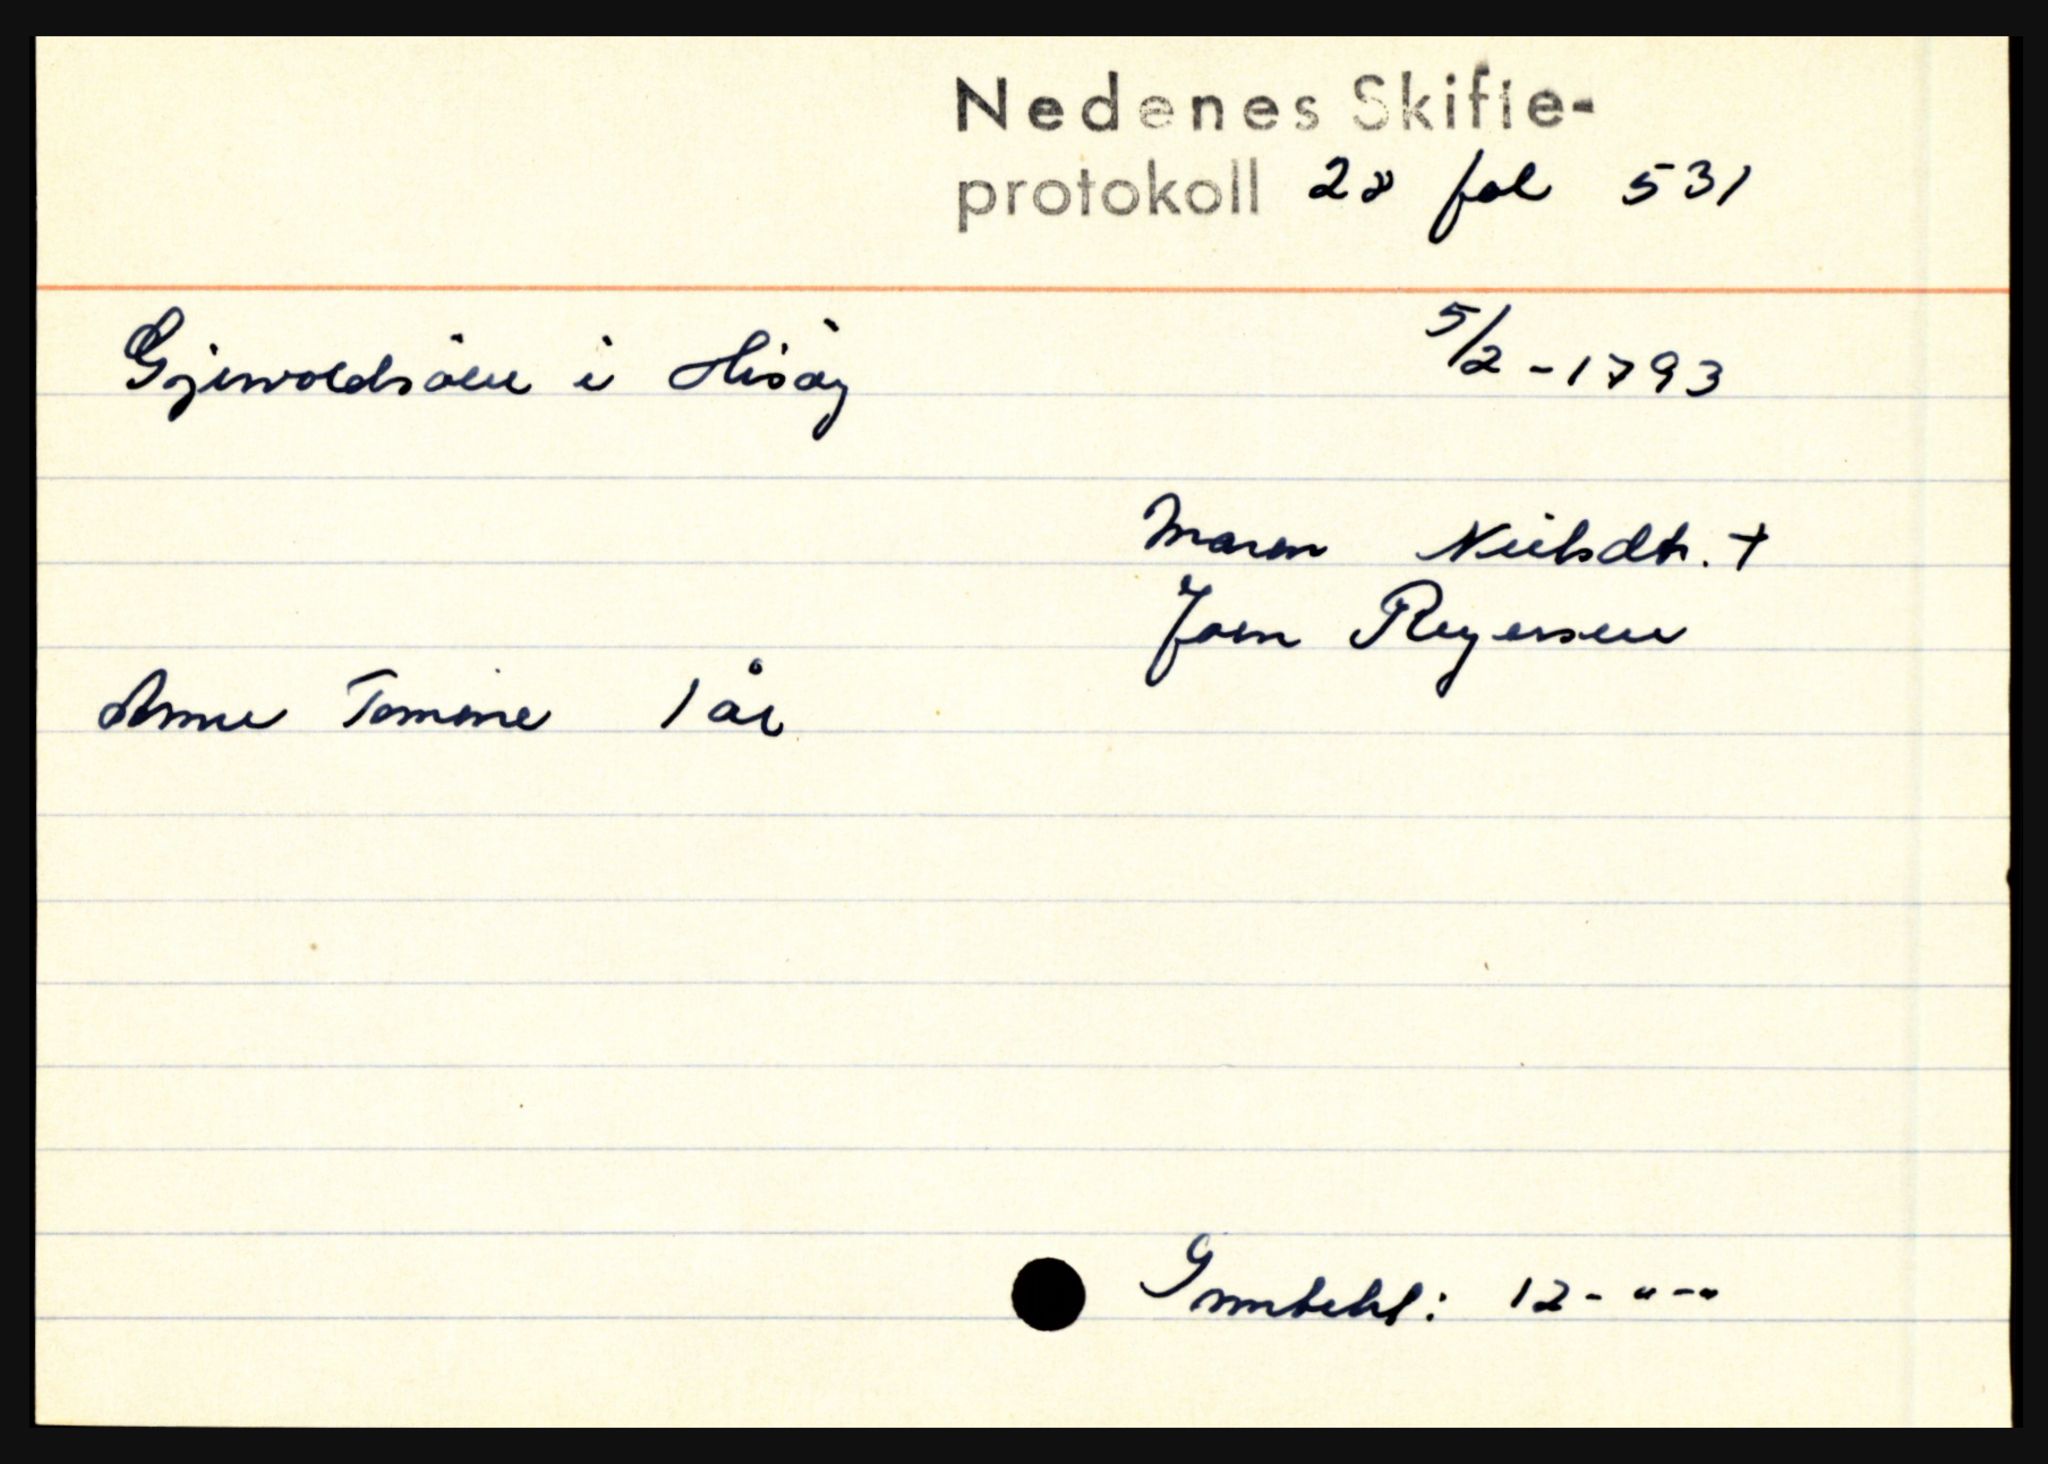 Nedenes Skifte-
protokoll 28 fol 531
Gjervoldsöen i Hisöy 5/2-1793
Maren Nielsdtr. +
Joen Reyersen
Anne Tomine 1 år
12-"-"